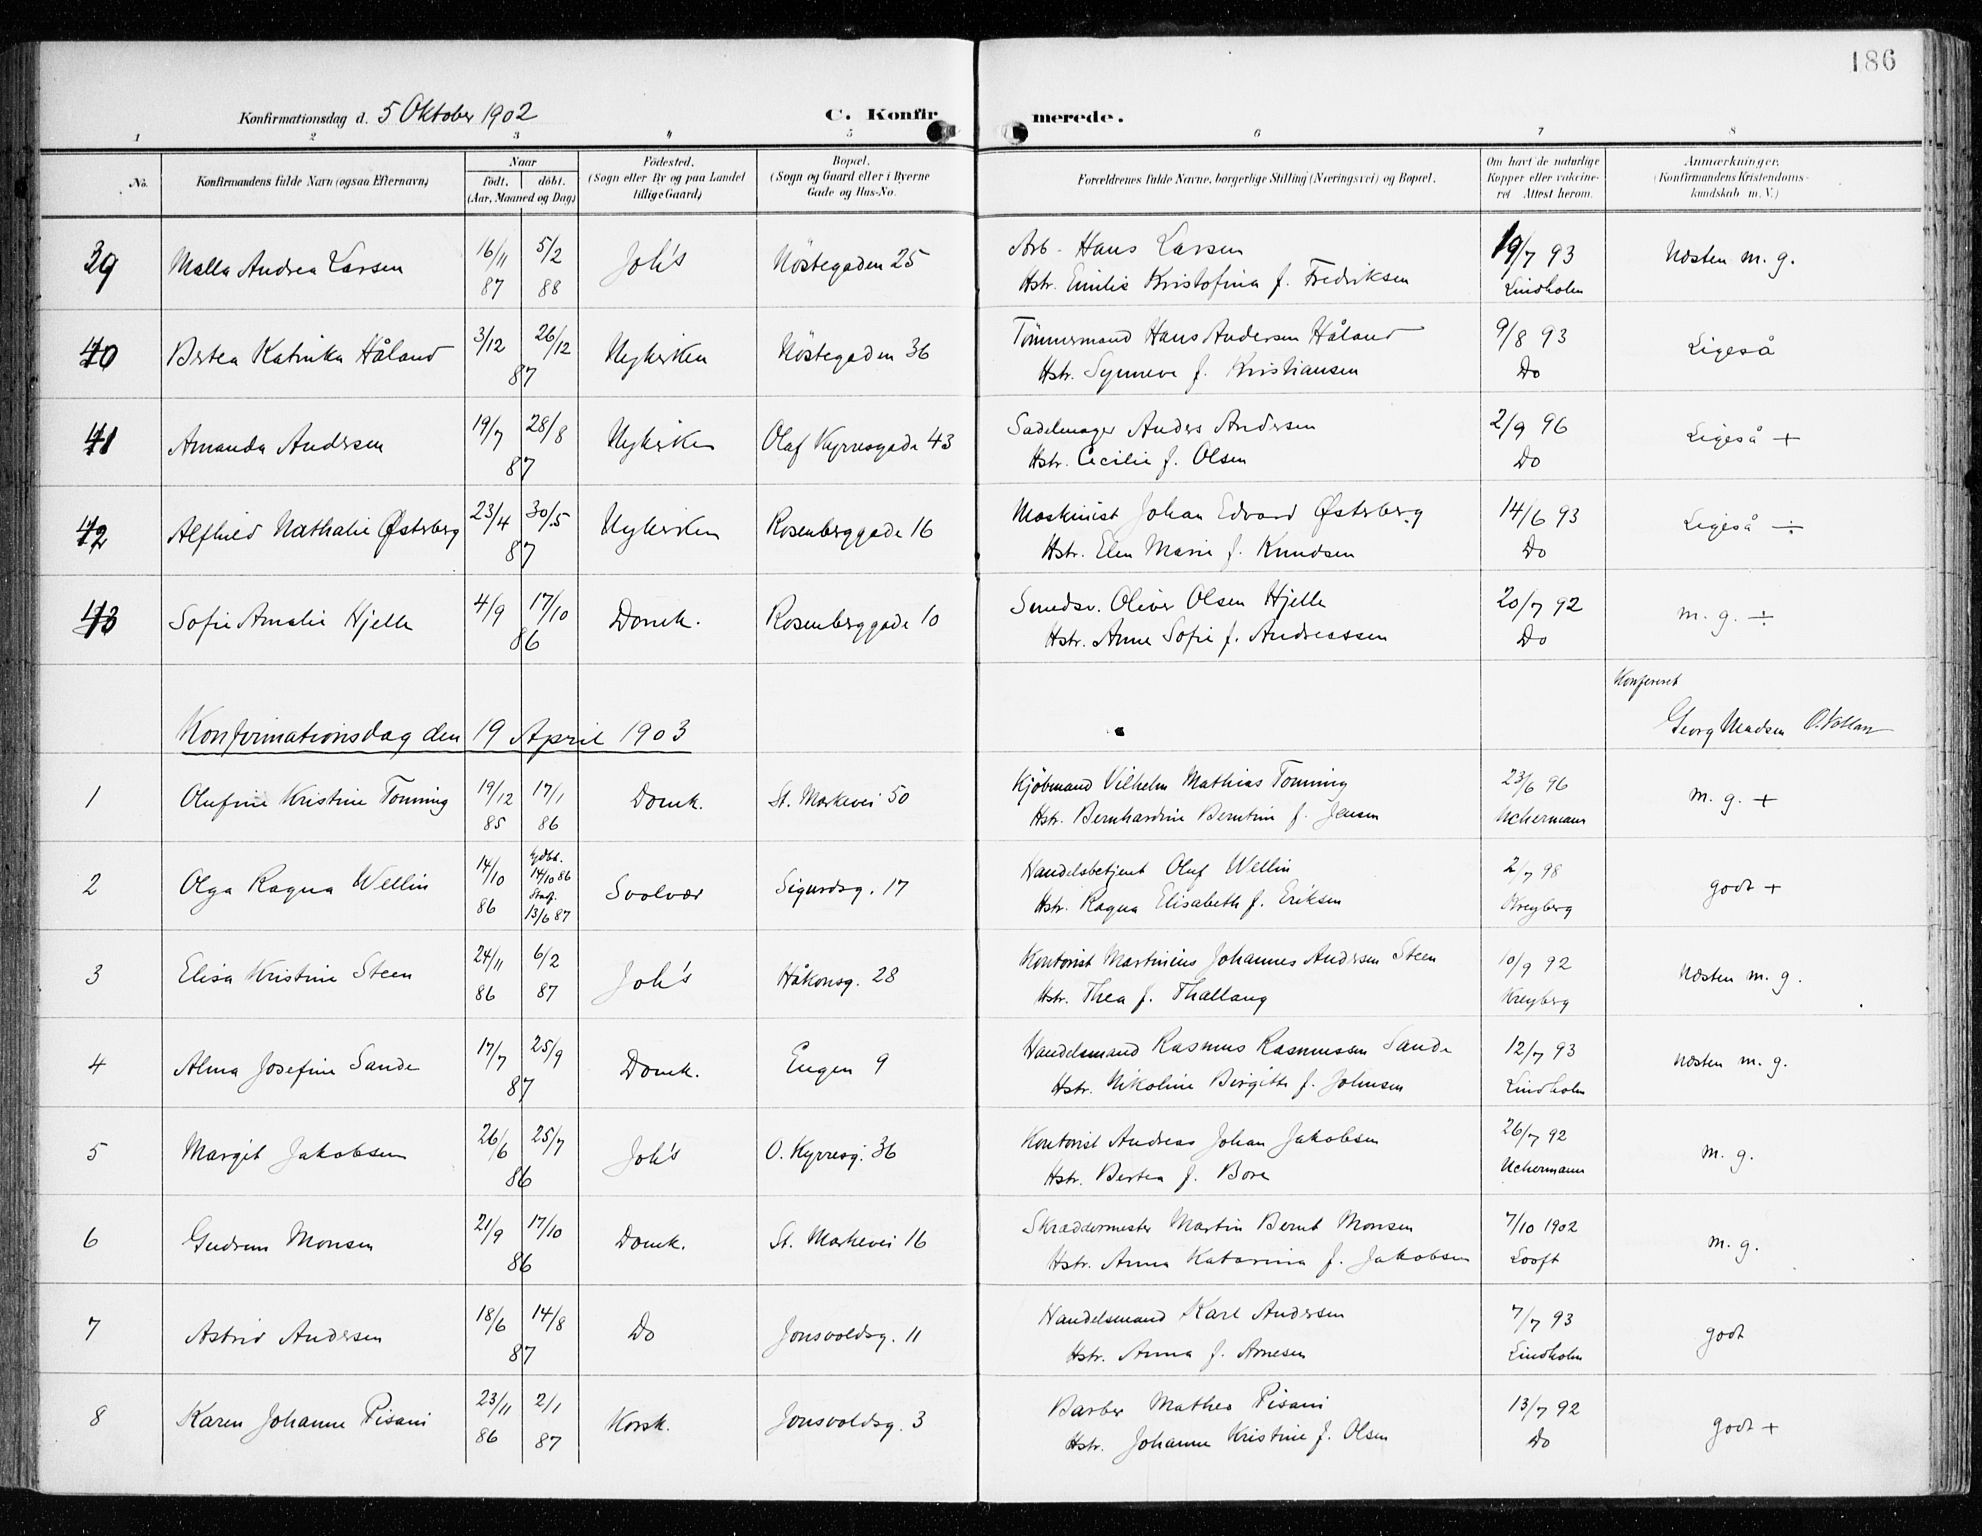 186
Konfirmationsdag d. 5 Oktober 1902 C. Konfir merede.
1 2 3 4 5 6 7 8
No. Konfirmandens fulde Navn (ogsaa Efternavn) Naar Födested. Bopæl. Forældrenes fulde Navne, borgerlige Stilling (Næringsvei) og Bopæl. Om havt de naturlige Anmærkninger.
födt. döbt. (Sogn eller By og paa Landet (Sogn og Gaard eller i Byerne Kopper eller vakcine- (Konfirmandens Kristendoms-
(Aar, Maaned og Dag) tillige Gaard) Gade og Hus-No. ret Attest herom. kundskab m. V.)
39 Malla Andrea Larsen 16/11 87 5/2 88 Joh's Nöstegaden 25 Arb. Hans Larsen 19/7 93 Næsten m. g.
Hstr. Emilie Kristofina f. Fredriksen Lindholm
40 Bertea Katrika Håland 3/12 26/12 87 Nykirken Nöstegaden 36 Tömmermand Hans Andersen Håland 9/8 93 Ligeså
Hstr. Synneve f. Kristiansen Do
41 Amanda Andersen 19/7 28/8 87 Nykirken Olaf Kyrresgade 43 Sadelmager Anders Andersen 2/9 96 Ligeså +
Hstr. Cecilie f. Olsen Do
42 Alfhild Nathalie Østerberg 23/4 30/5 87 Nykirken Rosenberggade 16 Maskinist Johan Edvard Østerberg 14/6 93 Ligeså ÷
Hstr. Elen Marie f. Knudsen Do
43 Sofie Amalie Hjelle 4/9 17/10 86 Domk. Rosenberggade 10 Smedsv. Oliver Olsen Hjelle 20/7 92 m. g. ÷
Hstr. Anne Sofie f. Andreassen Do
Konfereret
Konfirmationsdag den 19 April 1903 Georg Madsen
1 Olufine Kristine Tonning 19/12 85 17/1 86 Domk. St. Markevei 50 Kjöbmand Vilhelm Mathias Tonning 23/6 96 m. g. +
Hstr. Bernhardine Berntine f. Jensen Uchermann
2 Olga Ragna Wellin 14/10 86 Hjdbt. 14/10 86 Stadf. 13/6 87 Svolvær Sigurdsg. 17 Handelsbetjent Oluf Wellin 2/7 98 godt +
Hstr. Ragna Elisabeth f. Eriksen Kreyberg
3 Elisa Kristine Steen 24/11 86 6/2 87 Joh's Håkonsg. 28 Kontorist Martinius Johannes Andersen Steen 10/9 92 Næsten m. g.
Hstr. Thea f. Thallaug Kreyberg
4 Alma Josefine Sande 17/7 25/9 87 Domk. Engen 9 Handelsmand Rasmus Rasmussen Sande 12/7 93 Næsten m. g.
Hstr. Nikoline Birgitte f. Johnsen Lindholm
5 Margit Jakobsen 26/6 25/7 86 Joh's O. Kyrresg. 36 Kontorist Andreas Johan Jakobsen 26/7 92 m. g.
Hstr. Bertea f. Bore Uchermann
6 Gudrun Monsen 21/9 17/10 86 Domk. St. Markevei 16 Skræddermester Martin Bernt Monsen 7/10 1902 m. g.
Hstr. Anna Katarina f. Jakobsen Looft
7 Astrid Andersen 18/6 14/8 87 Do Jonsvoldsg. 11 Handelsmand Karl Andersen 7/7 93 godt
Hstr. Anna f. Arnesen Lindholm
8 Karen Johanne Pisani 23/11 86 2/1 87 Korsk. Jonsvoldsg. 3 Barber Matheo Pisani 13/7 92 godt +
Hstr. Johanne Kristine f. Olsen Do